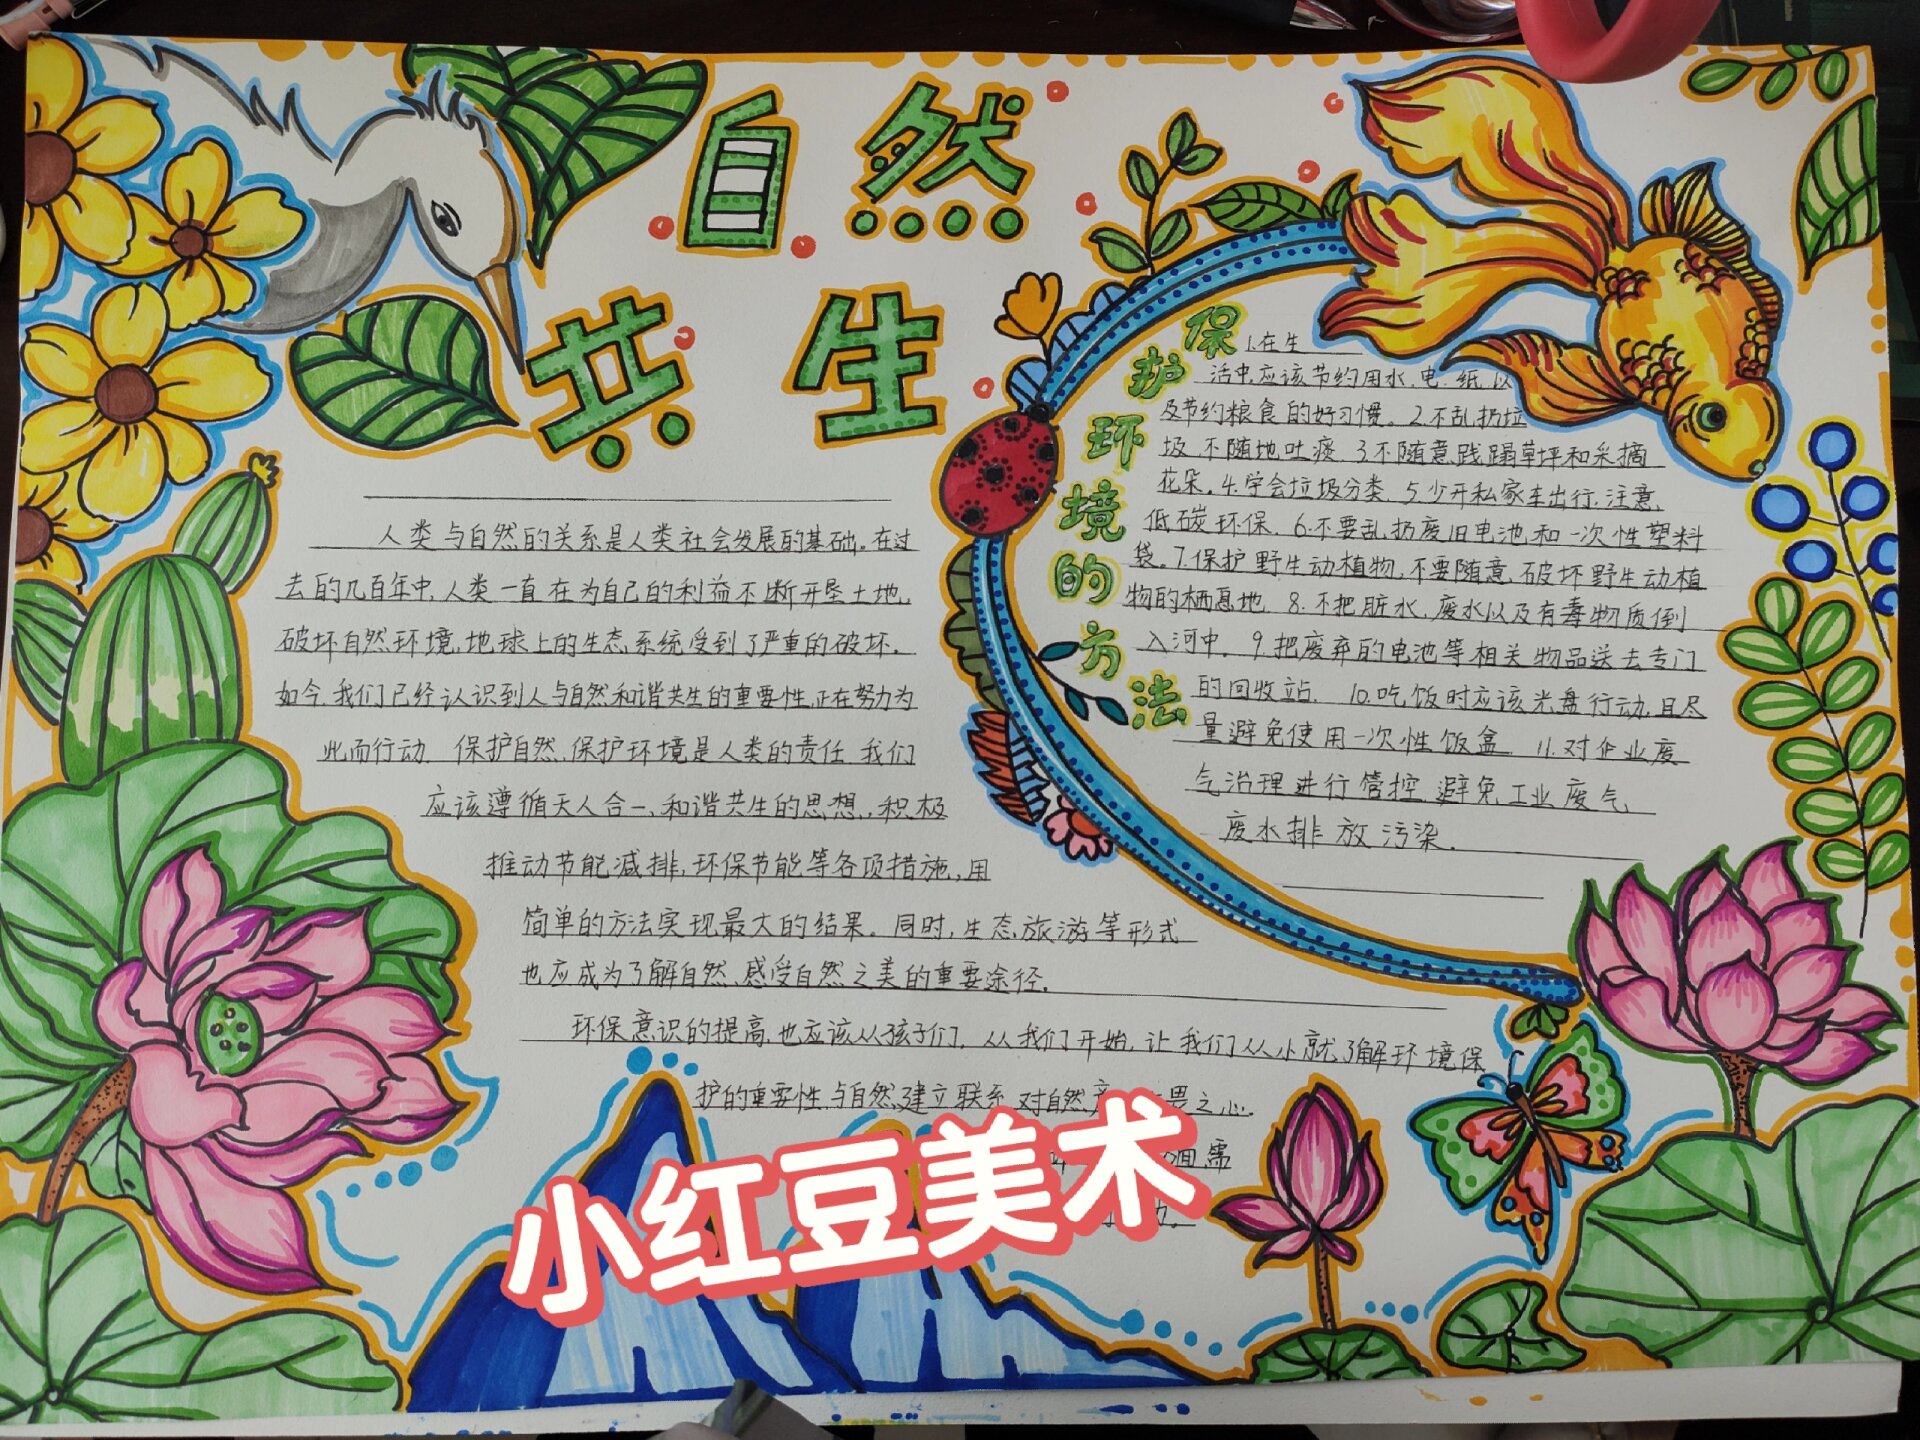 自然
共生
人类与自然的关系是人类社会发展的基础。在过
去的几百年中,人类一直在为自己的利益不断开垦土地,
破坏自然环境,地球上的生态系统受到了严重的破坏。
如今,我们已经认识到人与自然和谐共生的重要性,正在努力为
此而行动. 保护自然,保护环境是人类的责任 我们
应该遵循天人合一、和谐共生的思想,积极
推动节能减排,环保节能等各项措施,用
简单的方法实现最大的结果。同时,生态旅游等形式
也应成为了解自然、感受自然之美的重要途径.
环保意识的提高,也应该从孩子们,从我们开始,让我们从小就了解环境保
护的重要性,与自然建立联系,对自然产 畏之心.
需
小红豆美术
保护环境的方法
1.在生
活中,应该节约用水、电、纸,以
及节约粮食的好习惯。2.不乱扔垃
圾,不随地吐痰 3.不随意践蹋草坪和采摘
花朵。4.学会垃圾分类. 5.少开私家车出行,注意
低碳环保. 6.不要乱扔废旧电池和一次性塑料
袋。7.保护野生动植物,不要随意破坏野生动植
物的栖息地. 8.不把脏水、废水以及有毒物质倒
入河中. 9.把废弃的电池等相关物品送去专门
的回收站. 10.吃饭时应该光盘行动,且尽
量避免使用一次性饭盒 11.对企业废
气治理进行管控,避免工业废气、
废水排放污染.